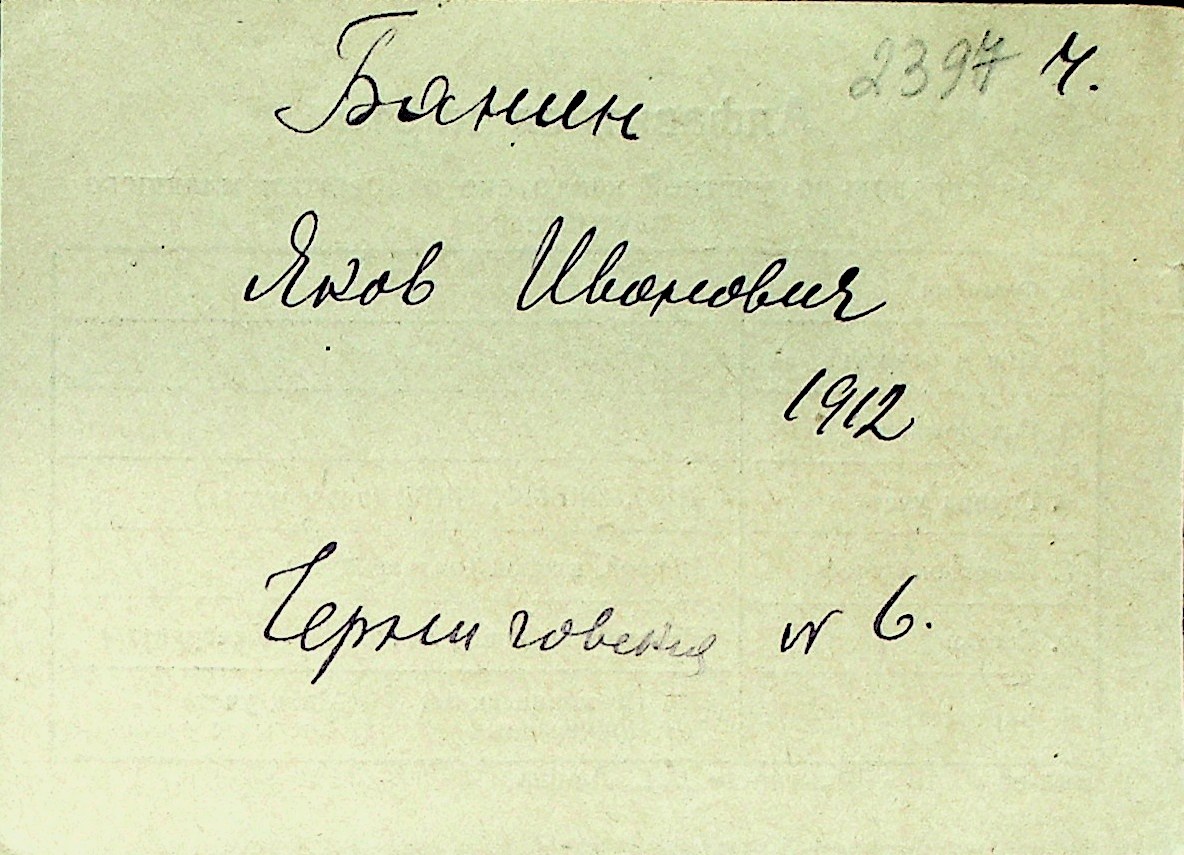 2397 ч.
Банин
Яков Иванович
1912
Черниговская № 6.